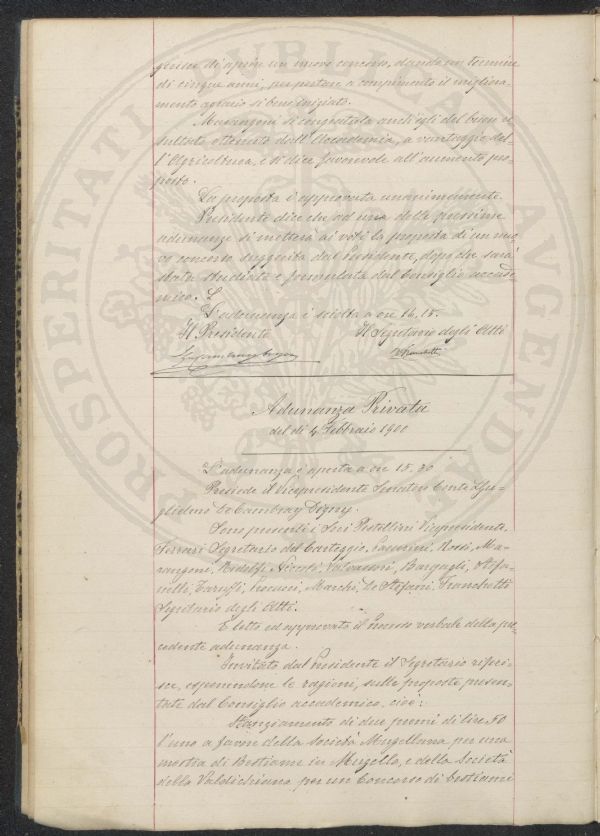 gerisce di aprire un nuovo concorso, dando un termine
di cinque anni, per portare a compimento il migliora-
mento agrario sì bene iniziato.
Marangoni si congratula anch'egli del buon re
sultato ottenuto dall'Accademia, a vantaggio del-
l'Agricoltura, e si dice favorevole all'aumento pro
posto.
La proposta è approvata unanimemente.
Presidente dice che ad una delle prossime
adunanze si metterà ai voti la proposta di un nuo
vo concorso suggerita dal Presidente, dopo che sarà
stata studiata e formulata dal Consiglio accade
mico.
L'adunanza è sciolta a ore 16,15.
Il Presidente Il Segretario degli Atti
Franchetti
Adunanza Privata
del dì 4 Febbraio 1900
L'adunanza è aperta a ore 15,30
Presiede il Vicepresidente Senatore Conte Gu-
glielmo De Cambray Digny.
Sono presenti i Soci Pestellini Vicepresidente,
Ferrari Segretario del Carteggio, Passerini, Rossi, Ma-
rangoni, Ridolfi, Niccoli, Valvassori, Bargagli, Stefa-
nelli, Taruffi, Pecucci, Marchi, De Stefani, Franchetti
Segretario degli Atti.
È letto ed approvato il Processo verbale della pre
cedente adunanza.
Invitato dal Presidente il Segretario riferi-
sce, esponendone le ragioni, sulle proposte presen-
tate dal Consiglio accademico, cioè:
Stanziamento di due premi di lire 50
l'uno a favore della Società Mugellana per una
mostra di Bestiame in Mugello, e della Società
della Valdichiana per un Concorso di bestiami
PROSPERITATI PVBLICAE AVGENDAE